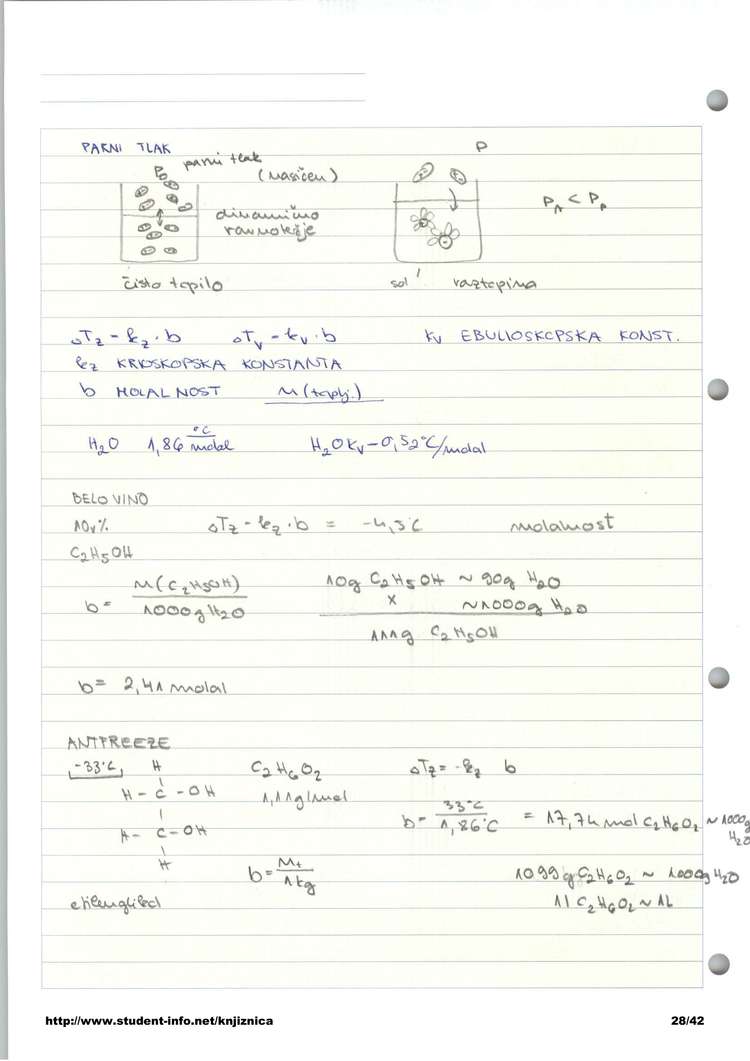 PARNI TLAK
P
P₀ parni tlak
(nasičen)
dinamično
ravnotežje
P_A < P_P
čisto topilo
sol
raztopina
ΔT_z = k_z · b ΔT_v = k_v · b K_v EBULIOSKOPSKA KONST.
k_z KRIOSKOPSKA KONSTANTA
b MOLALNOST M (toplj.)
H₂O 1,86 °C/molal H₂O K_v = 0,52°C/molal
BELO VINO
10v% ΔT_z = k_z · b = -4,3°C molalnost
C₂H₅OH
b = M(C₂H₅OH) / 1000g H₂O
10g C₂H₅OH ~ 90g H₂O
x ~1000g H₂O
111g C₂H₅OH
b = 2,41 molal
ANTFREEZE
-33°C H C₂H₆O₂ ΔT_z = -k_z b
H - C - OH 1,11g/mol
b = 33°C / 1,86°C = 17,74 mol C₂H₆O₂ ~ 1000g H₂O
H - C - OH
H
b = M_t / 1kg
1099g C₂H₆O₂ ~ 1000g H₂O
etilenglikol 1l C₂H₆O₂ ~ 1L
http://www.student-info.net/knjiznica 28/42